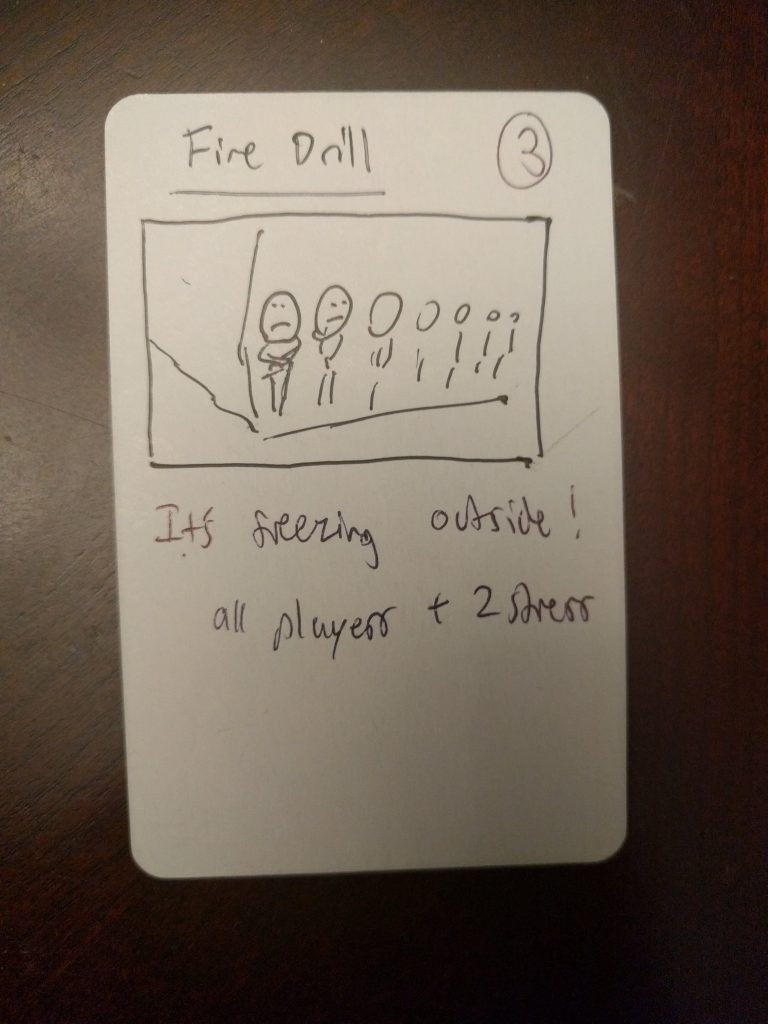 Fire Drill
3
It's freezing outside!
all players + 2 stress